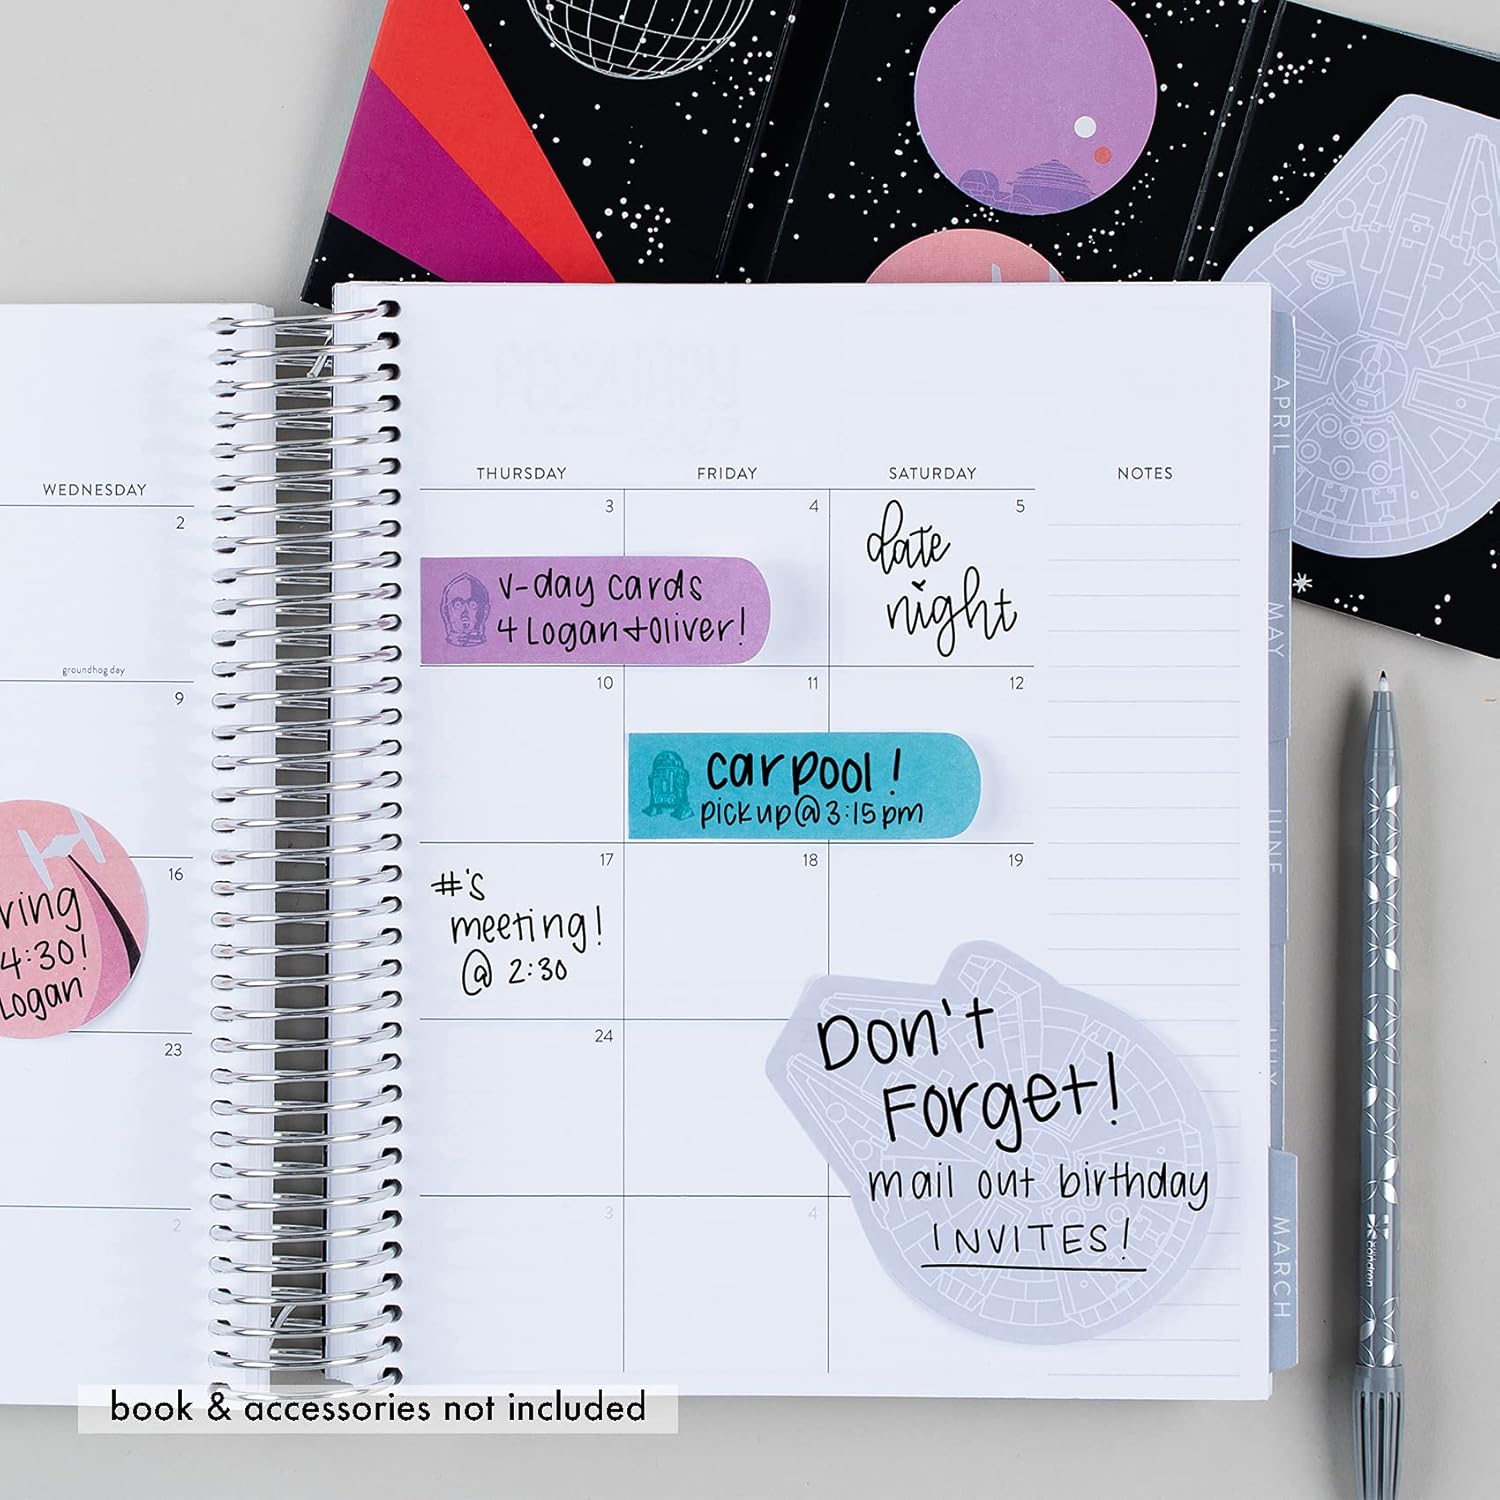 WEDNESDAY
2
groundhog day
9
16
ring
4:30!
Logan
23
2
THURSDAY
FRIDAY
SATURDAY
NOTES
3
4
5
v-day cards
4 Logan + Oliver!
date
night
10
11
12
car pool!
pick up @ 3:15 pm
17
18
19
#'s
meeting!
@ 2:30
24
Don't
Forget!
mail out birthday
INVITES!
3
4
APRIL
MAY
JUNE
JULY
MARCH
book & accessories not included